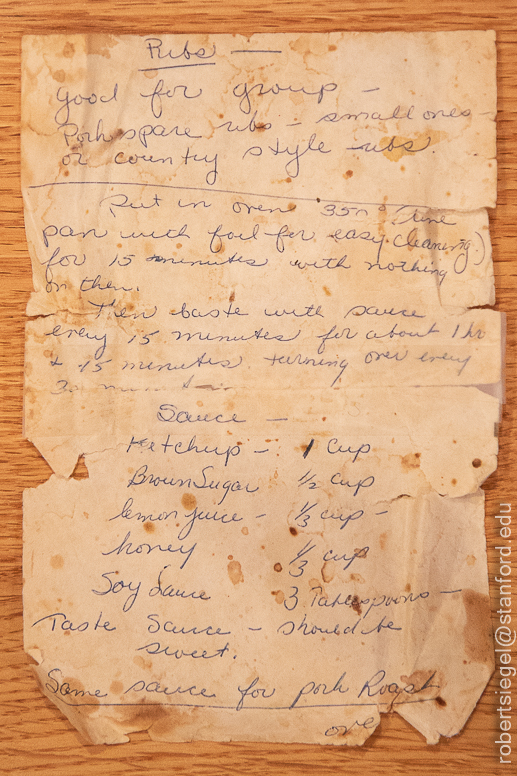 Ribs —
Good for group -
Pork spare ribs - small ones
or country style ribs.
Put in oven 350° (line
pan with foil for easy cleaning.)
for 15 minutes with nothing
on them.
Then baste with sauce
every 15 minutes for about 1 hr
+ 15 minutes turning over every
30 minutes
Sauce -
Ketchup - 1 cup
Brown Sugar ½ cup
lemon juice - ⅓ cup -
honey ⅓ cup
Soy Sauce 3 Tablespoons -
Taste Sauce - should be
sweet.
Same sauce for pork Roast
over
robertsiegel@stanford.edu